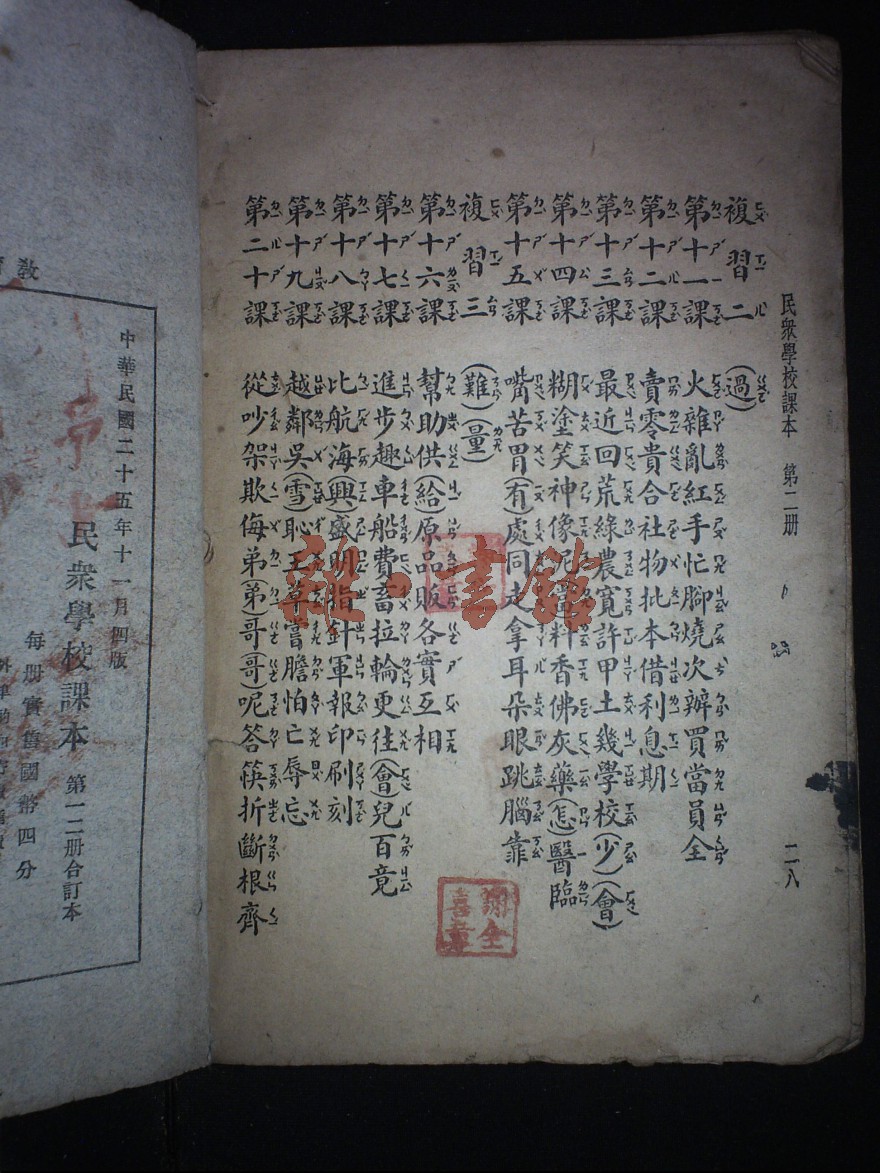 民衆學校課本 第二册 二八
複習二 (過)
第十一課 火雜亂紅手忙脚燒次辦買當員全
第十二課 賣零貴合社物批本借利息期
第十三課 最近回荒綠農寬許甲土幾學校(少)(會)
第十四課 糊塗笑神像泥(當)料香佛灰藥(怎)醫臨
第十五課 嘴苦胃(有)處同走拿耳朵眼跳腦靠
複習三 (難)(量)
第十六課 幫助供(給)原品販各實互相
第十七課 進步趣車船費畜拉輪更往(會)兒百竟
第十八課 比航海(興)盛明指針軍報印刷刻
第十九課 越鄰吳(雪)恥王草嘗膽怕亡辱忘
第二十課 從吵架欺侮弟(弟)哥(哥)呢答筷折斷根齊
雜·書館
謝全喜章
教
中華民國二十五年十一月四版
民衆學校課本 第一二册合訂本
每册實售國幣四分